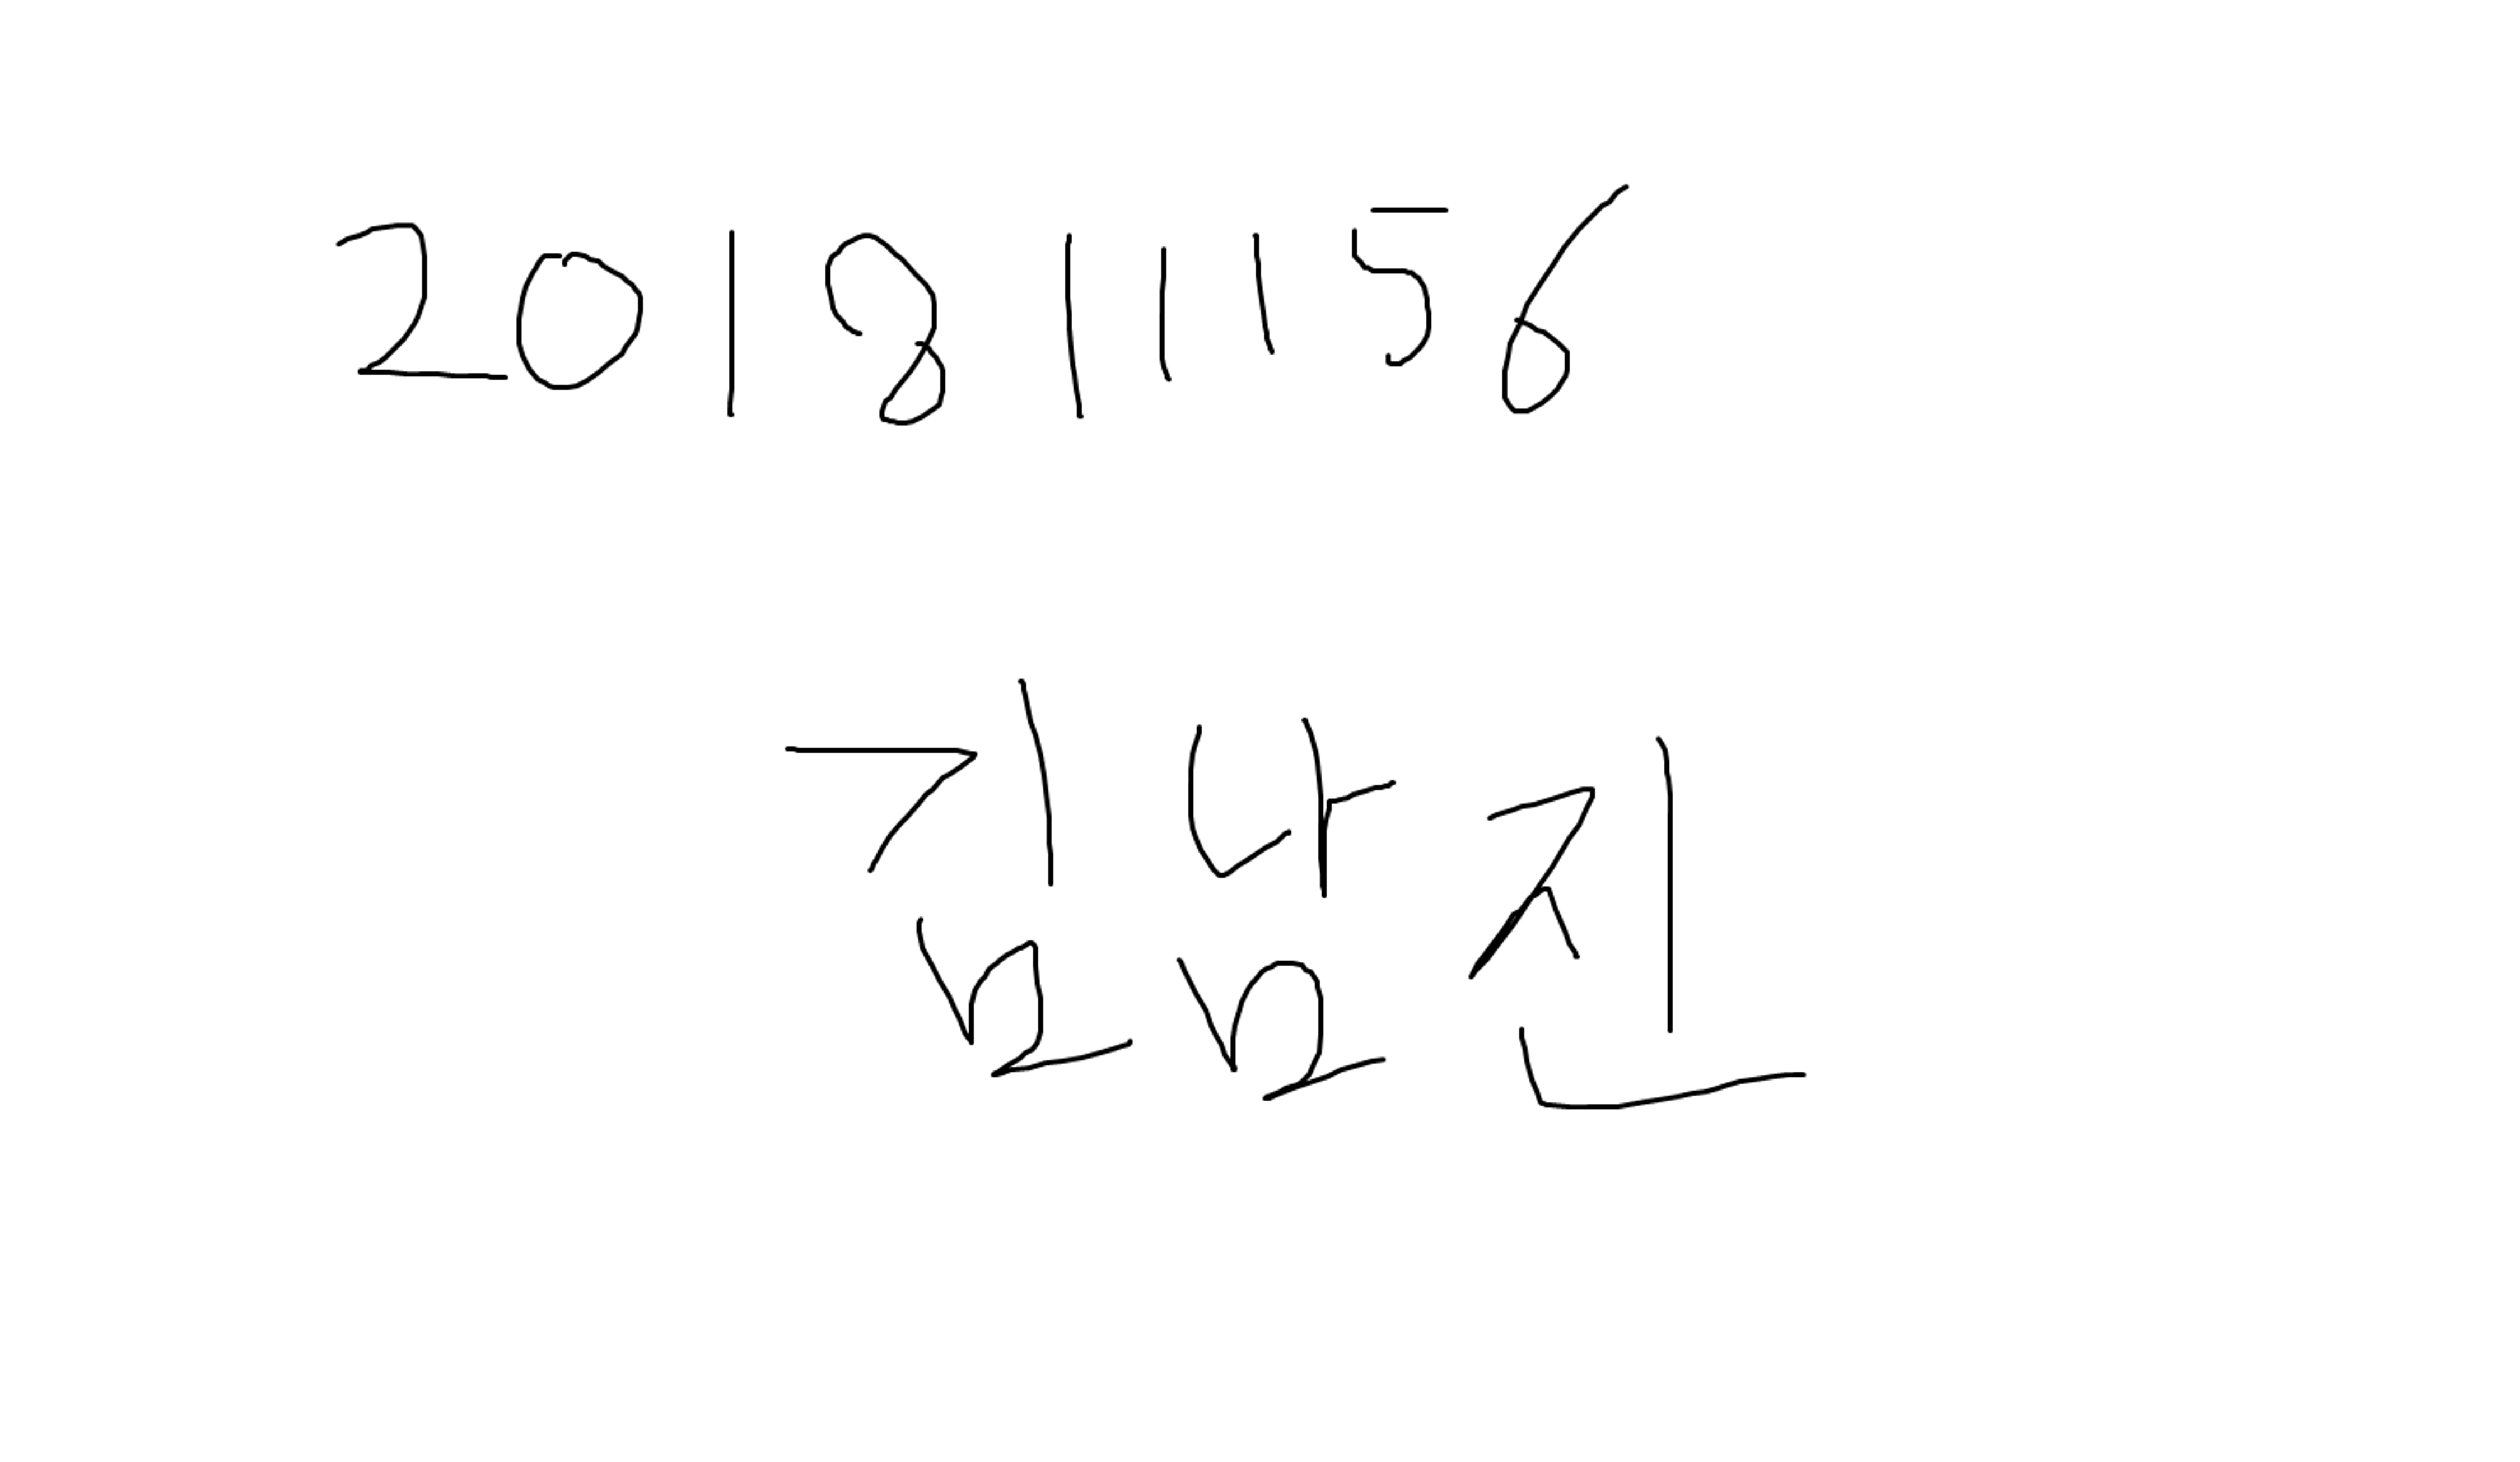 201811156
김남진